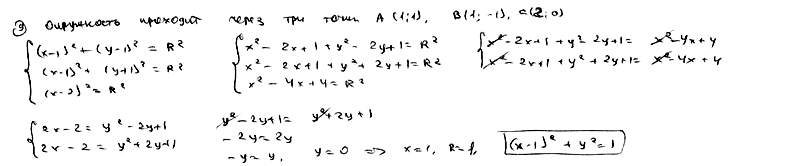 ③ Окружность проходит через три точки A (1;1), B(1; -1), C(2;0)
{ (x-1)² + (y-1)² = R²
(x-1)² + (y+1)² = R²
(x-2)² = R²
{ x² - 2x+1 + y² - 2y+1 = R²
x² - 2x+1 + y² + 2y+1 = R²
x² - 4x+4 = R²
{ x² - 2x+1 + y² - 2y+1 = x² - 4x+4
x² - 2x+1 + y² + 2y+1 = x² - 4x+4
{ 2x-2 = y² - 2y+1
2x-2 = y² + 2y+1
y² - 2y+1 = y² + 2y+1
- 2y = 2y
- y = y, y = 0 => x=1, R=1, (x-1)² + y² = 1